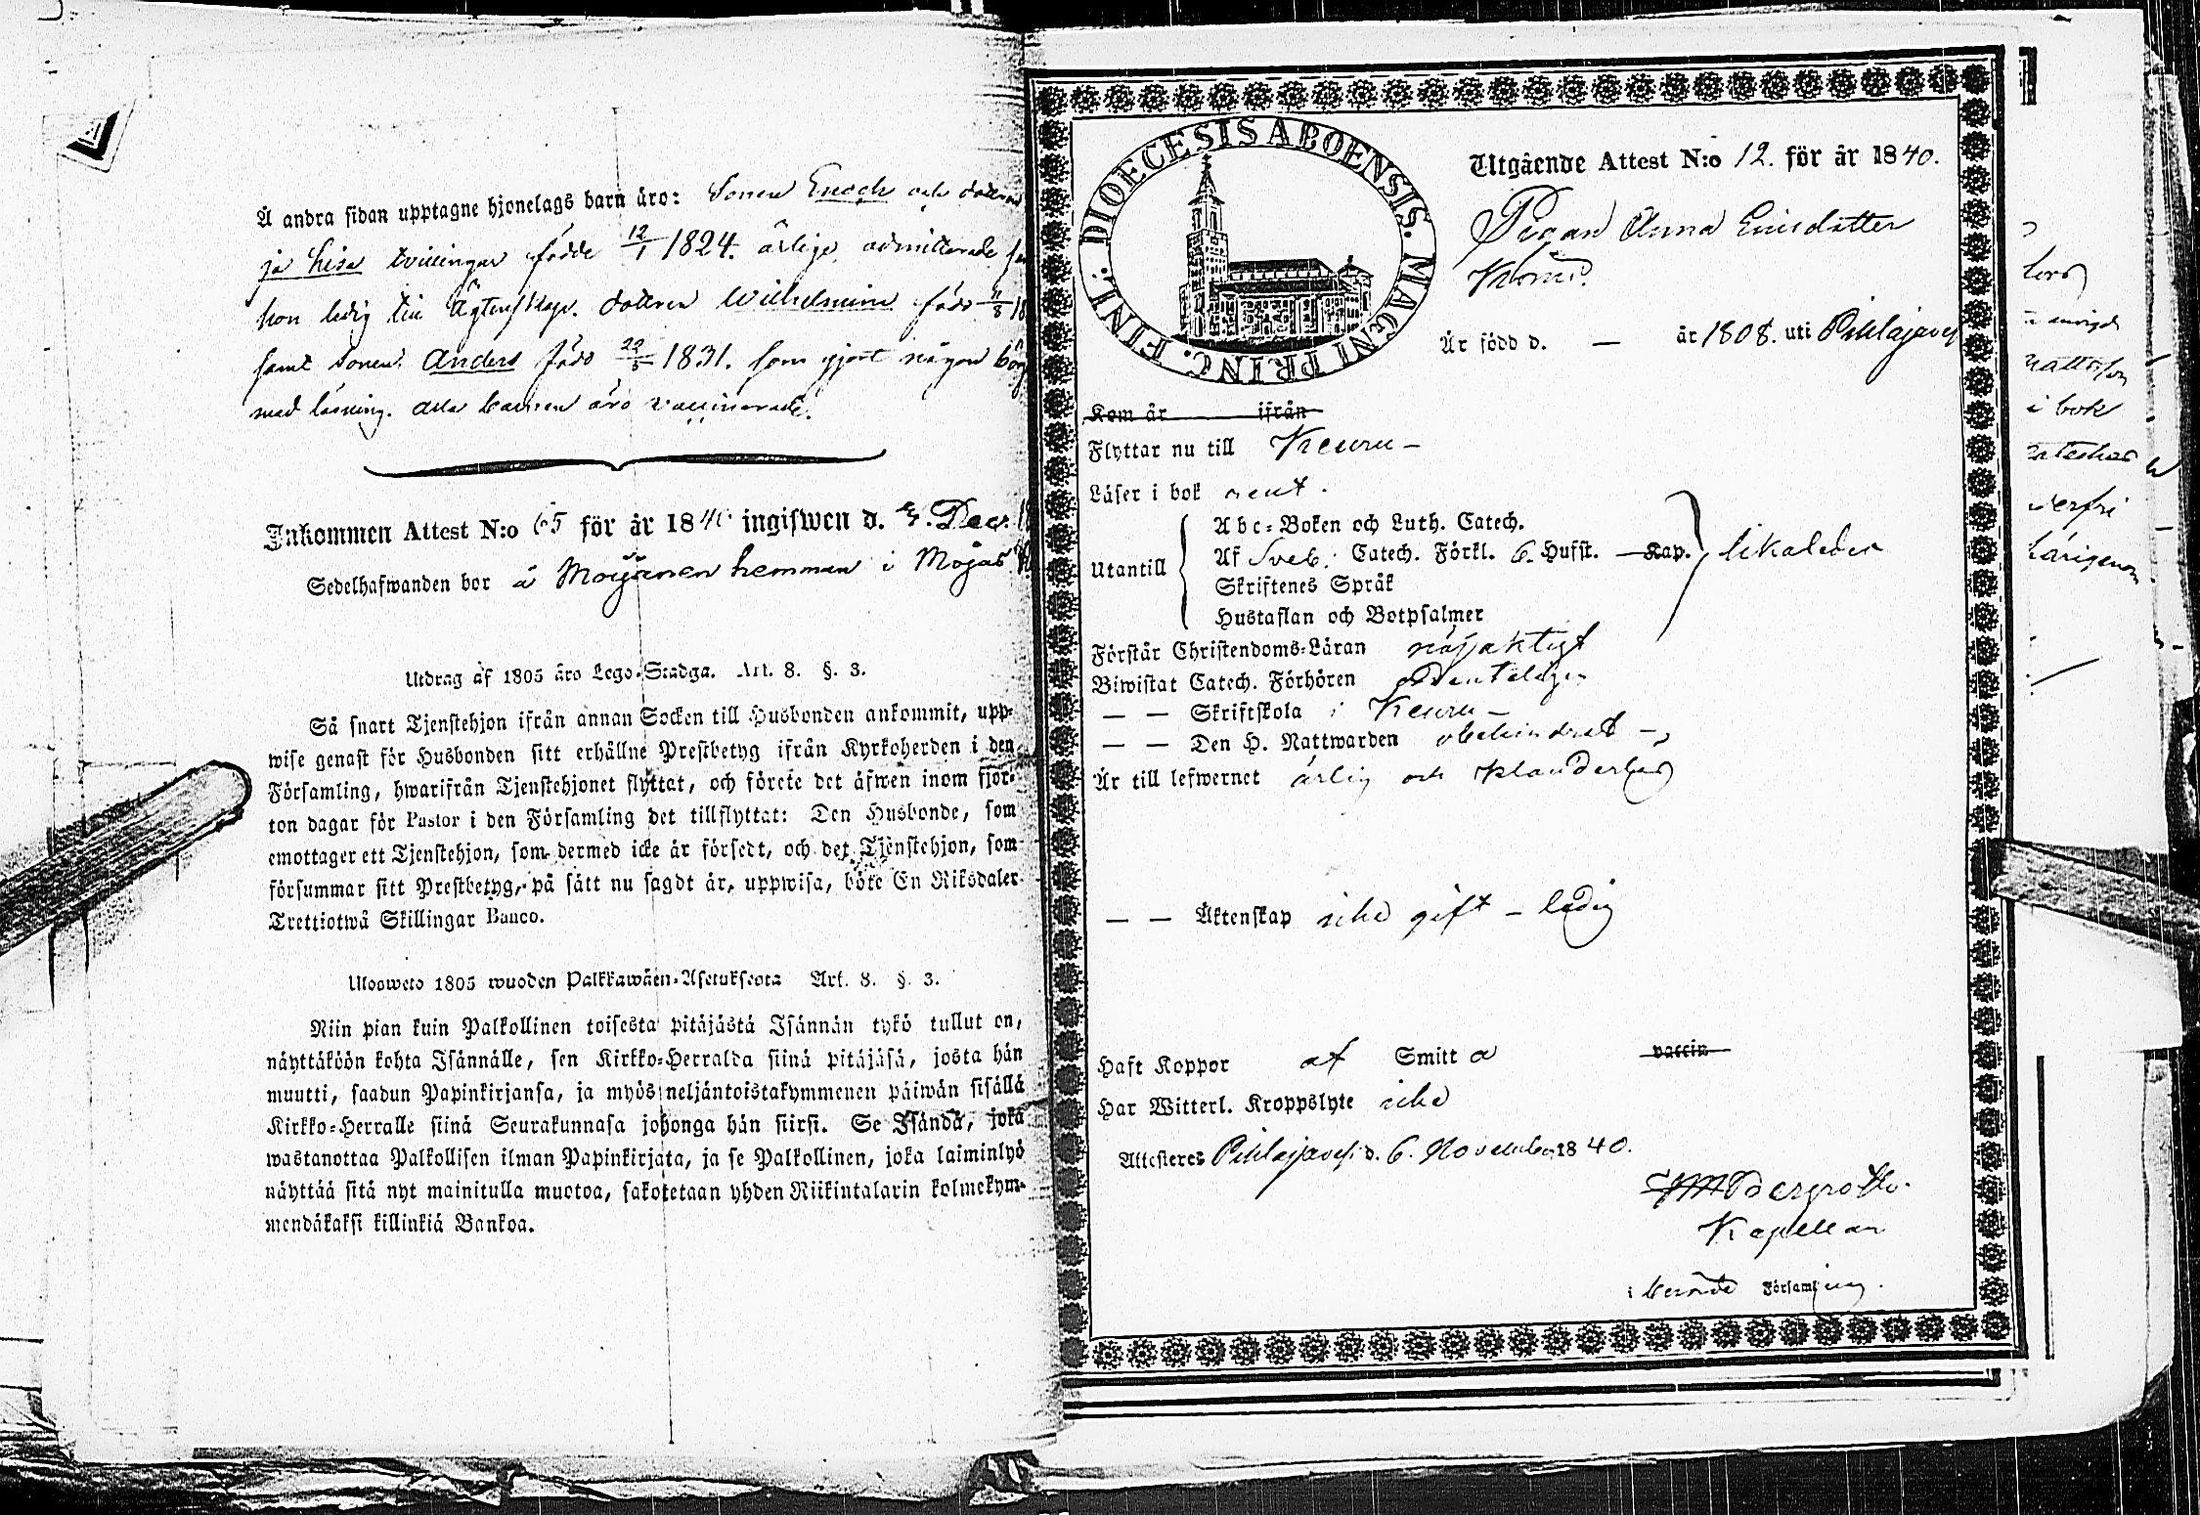 Å andra sidan upptagne hjonelags barn äro: Sonen Enoch och dottren
ja Lisa tvillingar födde 12/1 1824. ärlige, admitterade
hon ledig till Ägtenskap. dottren Wilhelmina född
samt sonen Anders född 22/5 1831. som gjort någon
med läsning. alla barnen äro vaccinerade.
Inkommen Attest N:o 65 för år 1840 ingifwen d. Dec.
Sedelhafwanden bor å Moijanen hemman i
Utdrag af 1805 års Lego-Stadga. Art. 8. §. 3.
Så snart Tjenstehjon ifrån annan Socken till Husbonden ankommit, upp-
wise genast för Husbonden sitt erhållne Prestbetyg ifrån Kyrkoherden i den
Församling, hwarifrån Tjenstehjonet flyttat, och förete det äfwen inom fjor-
ton dagar för Pastor i den Församling det tillflyttat: Den Husbonde, som
emottager ett Tjenstehjon, som dermed icke är försedt, och det Tjenstehjon, som
försummar sitt Prestbetyg, på sätt nu sagdt är, uppwisa, böte En Riksdaler
Trettiotwå Skillingar Banco.
Ulosweto 1805 wuoden Palkkawäen-Asetuksesta Art. 8. §. 3.
Niin pian kuin Palkollinen toisesta pitäjästä Isännän tykö tullut on,
näyttäköön kohta Isännälle, sen Kirkko-Herralda siinä pitäjäsä, josta hän
muutti, saadun Papinkirjansa, ja myös neljäntoistakymmenen päiwän sisällä
Kirkko-Herralle siinä Seurakunnasa johonga hän siirsi. Se Isändä, joka
wastanottaa Palkollisen ilman Papinkirjata, ja se Palkollinen, joka laiminlyö
näyttää sitä nyt mainitulla muotoa, sakotetaan yhden Riikintalarin kolmekym-
mendäkaksi killinkiä Bankoa.
DIOECESIS ABOENSIS. MAGNI PRINC. FINL.
Utgående Attest N:o 12. för år 1840.
Pigan Anna
Är född d. — år 1808. uti Pihlajavesi
Kom år ifrån
Flyttar nu till Keuru —
Läser i bok rent.
Utantill
Abc-Boken och Luth. Catech.
Af Sveb. Catech. Förkl. 6. Hufst. — Kap.
Skriftenes Språk
Hustaflan och Botpsalmer
likaledes
Förstår Christendoms-Läran nöjaktigt
Biwistat Catech. Förhören ordenteligen
— — Skriftskola i Keuru —
— — Den H. Nattwarden obehindrad —
Är till lefwernet ärlig och
— — Äktenskap icke gift — ledig
Haft Koppor af Smitt a vaccin
Har Witterl. Kroppslyte icke
Attesteres Pihlajavesi d. 6. November 1840.
Bergroth.
Kapellan
i berörde Församling.
lers
i bok
derfri
härigenom